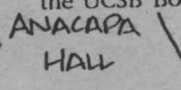 the UCSB Bo
ANACAPA
HALL